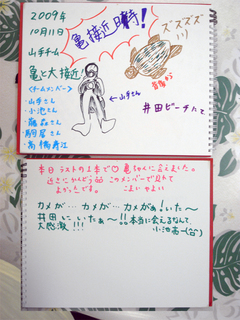 2009年
10月11日
山手チーム
亀接近日時!
ズズズズ
亀と大接近!
<チームメンバー>
・山手さん
・小池さん
・藤森さん
・駒居さん
・高橋寿江
←山手さん
井田ビーチにて
本日ラストの1本で♡亀ちゃんに会えました。
このメンバーで見れて
よかったです。
カメが… カメが… カメがぁ!いた〜
井田にいたぁ〜!!本当に会えるなんて
大感激!!!